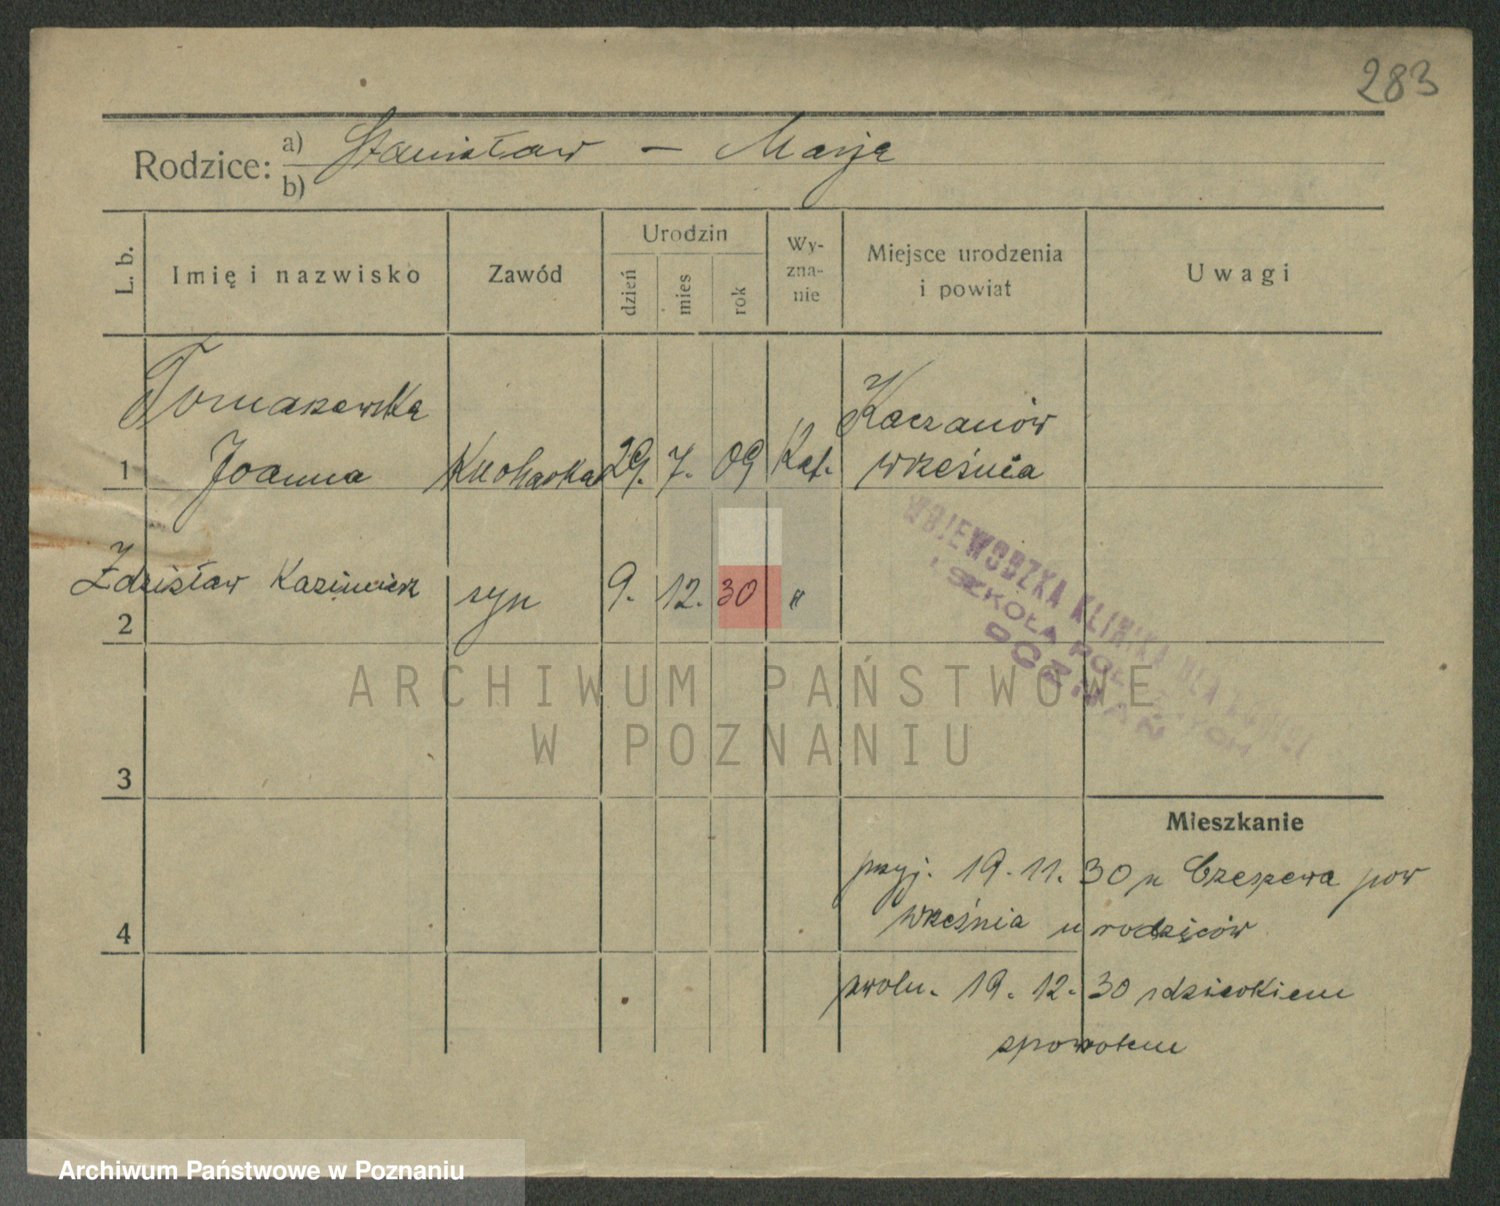 283
Rodzice: a) Stanisław – Marja
b)
L. b. Imię i nazwisko Zawód Urodzin dzień mies rok Wy-zna-nie Miejsce urodzenia i powiat Uwagi
Tomaszewska Kaczanów
1 Joanna Kucharka 29. 7. 09 Kat. września
Zdzisław Kazimierz syn 9. 12. 30 "
2
WOJEWÓDZKA KLINIKA DLA KOBIET
I SZKOŁA POŁOŻNYCH
POZNAŃ
3
Mieszkanie
przyj. 19.11.30 z Czeszewa pow
września u rodziców
4
zwoln. 19.12.30 z dzieckiem
spowrotem
ARCHIWUM PAŃSTWOWE
W POZNANIU
Archiwum Państwowe w Poznaniu